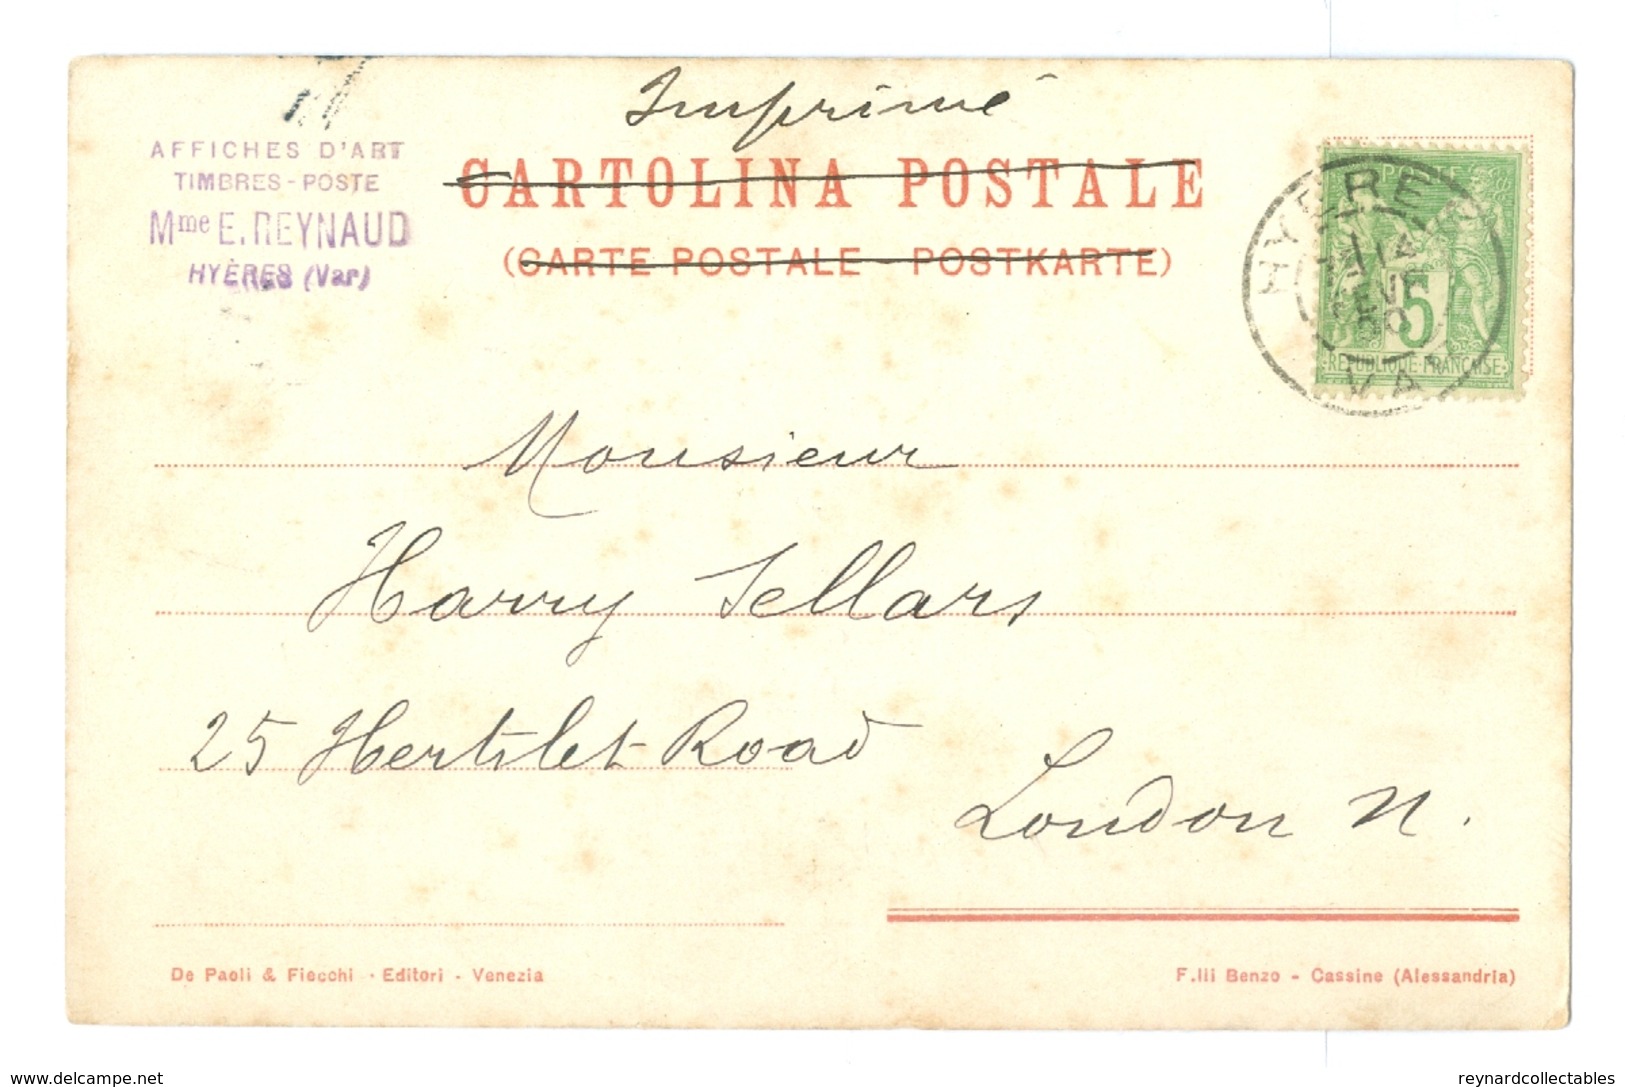 Imprimé
AFFICHES D'ART
TIMBRES-POSTE
Mme E. REYNAUD
HYÈRES (Var)
CARTOLINA POSTALE
(CARTE POSTALE - POSTKARTE)
POSTE
5
REPUBLIQUE FRANÇAISE
HYÈRES
FEVR
VAR
Monsieur
Harry Sellars
25 Hertslet Road
London N.
De Paoli & Fiecchi - Editori - Venezia
F.lli Benzo - Cassine (Alessandria)
www.delcampe.net
reynardcollectables